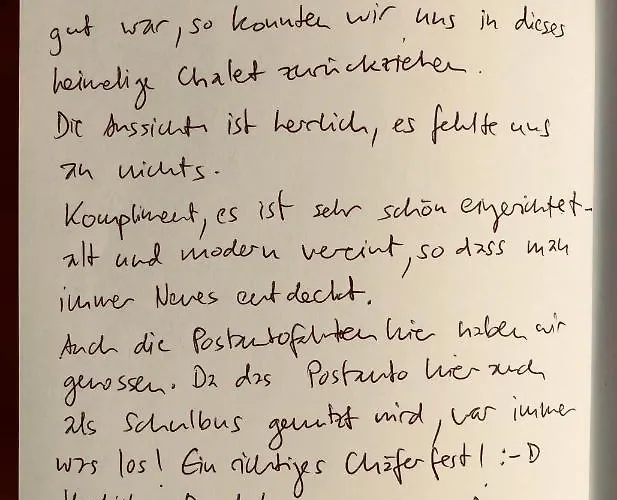 gut war, so konnten wir uns in dieses
heimelige Chalet zurückziehen.
Die Aussicht ist herrlich, es fehlte uns
an nichts.
Kompliment, es ist sehr schön eingerichtet-
alt und modern vereint, so dass man
immer Neues entdeckt.
Auch die Postautofahrten hier haben wir
genossen. Da das Postauto hier auch
als Schulbus genutzt wird, war immer
was los! Ein richtiges Chäferfest! :-D